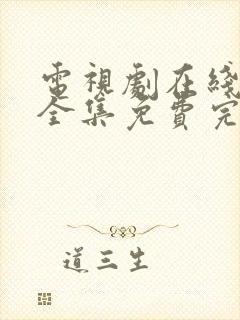 電視劇在綫
全集免費完
道三生